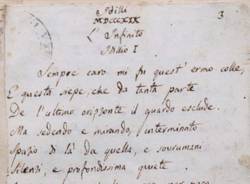 Idilli
MDCCCXIX
3
L'Infinito
Idilio I
Sempre caro mi fu quest'ermo colle,
E questa siepe, che da tanta parte
De l'ultimo orizzonte il guardo esclude.
Ma sedendo e mirando, interminato
Spazio di là da quella, e sovrumani
Silenzi, e profondissima quiete